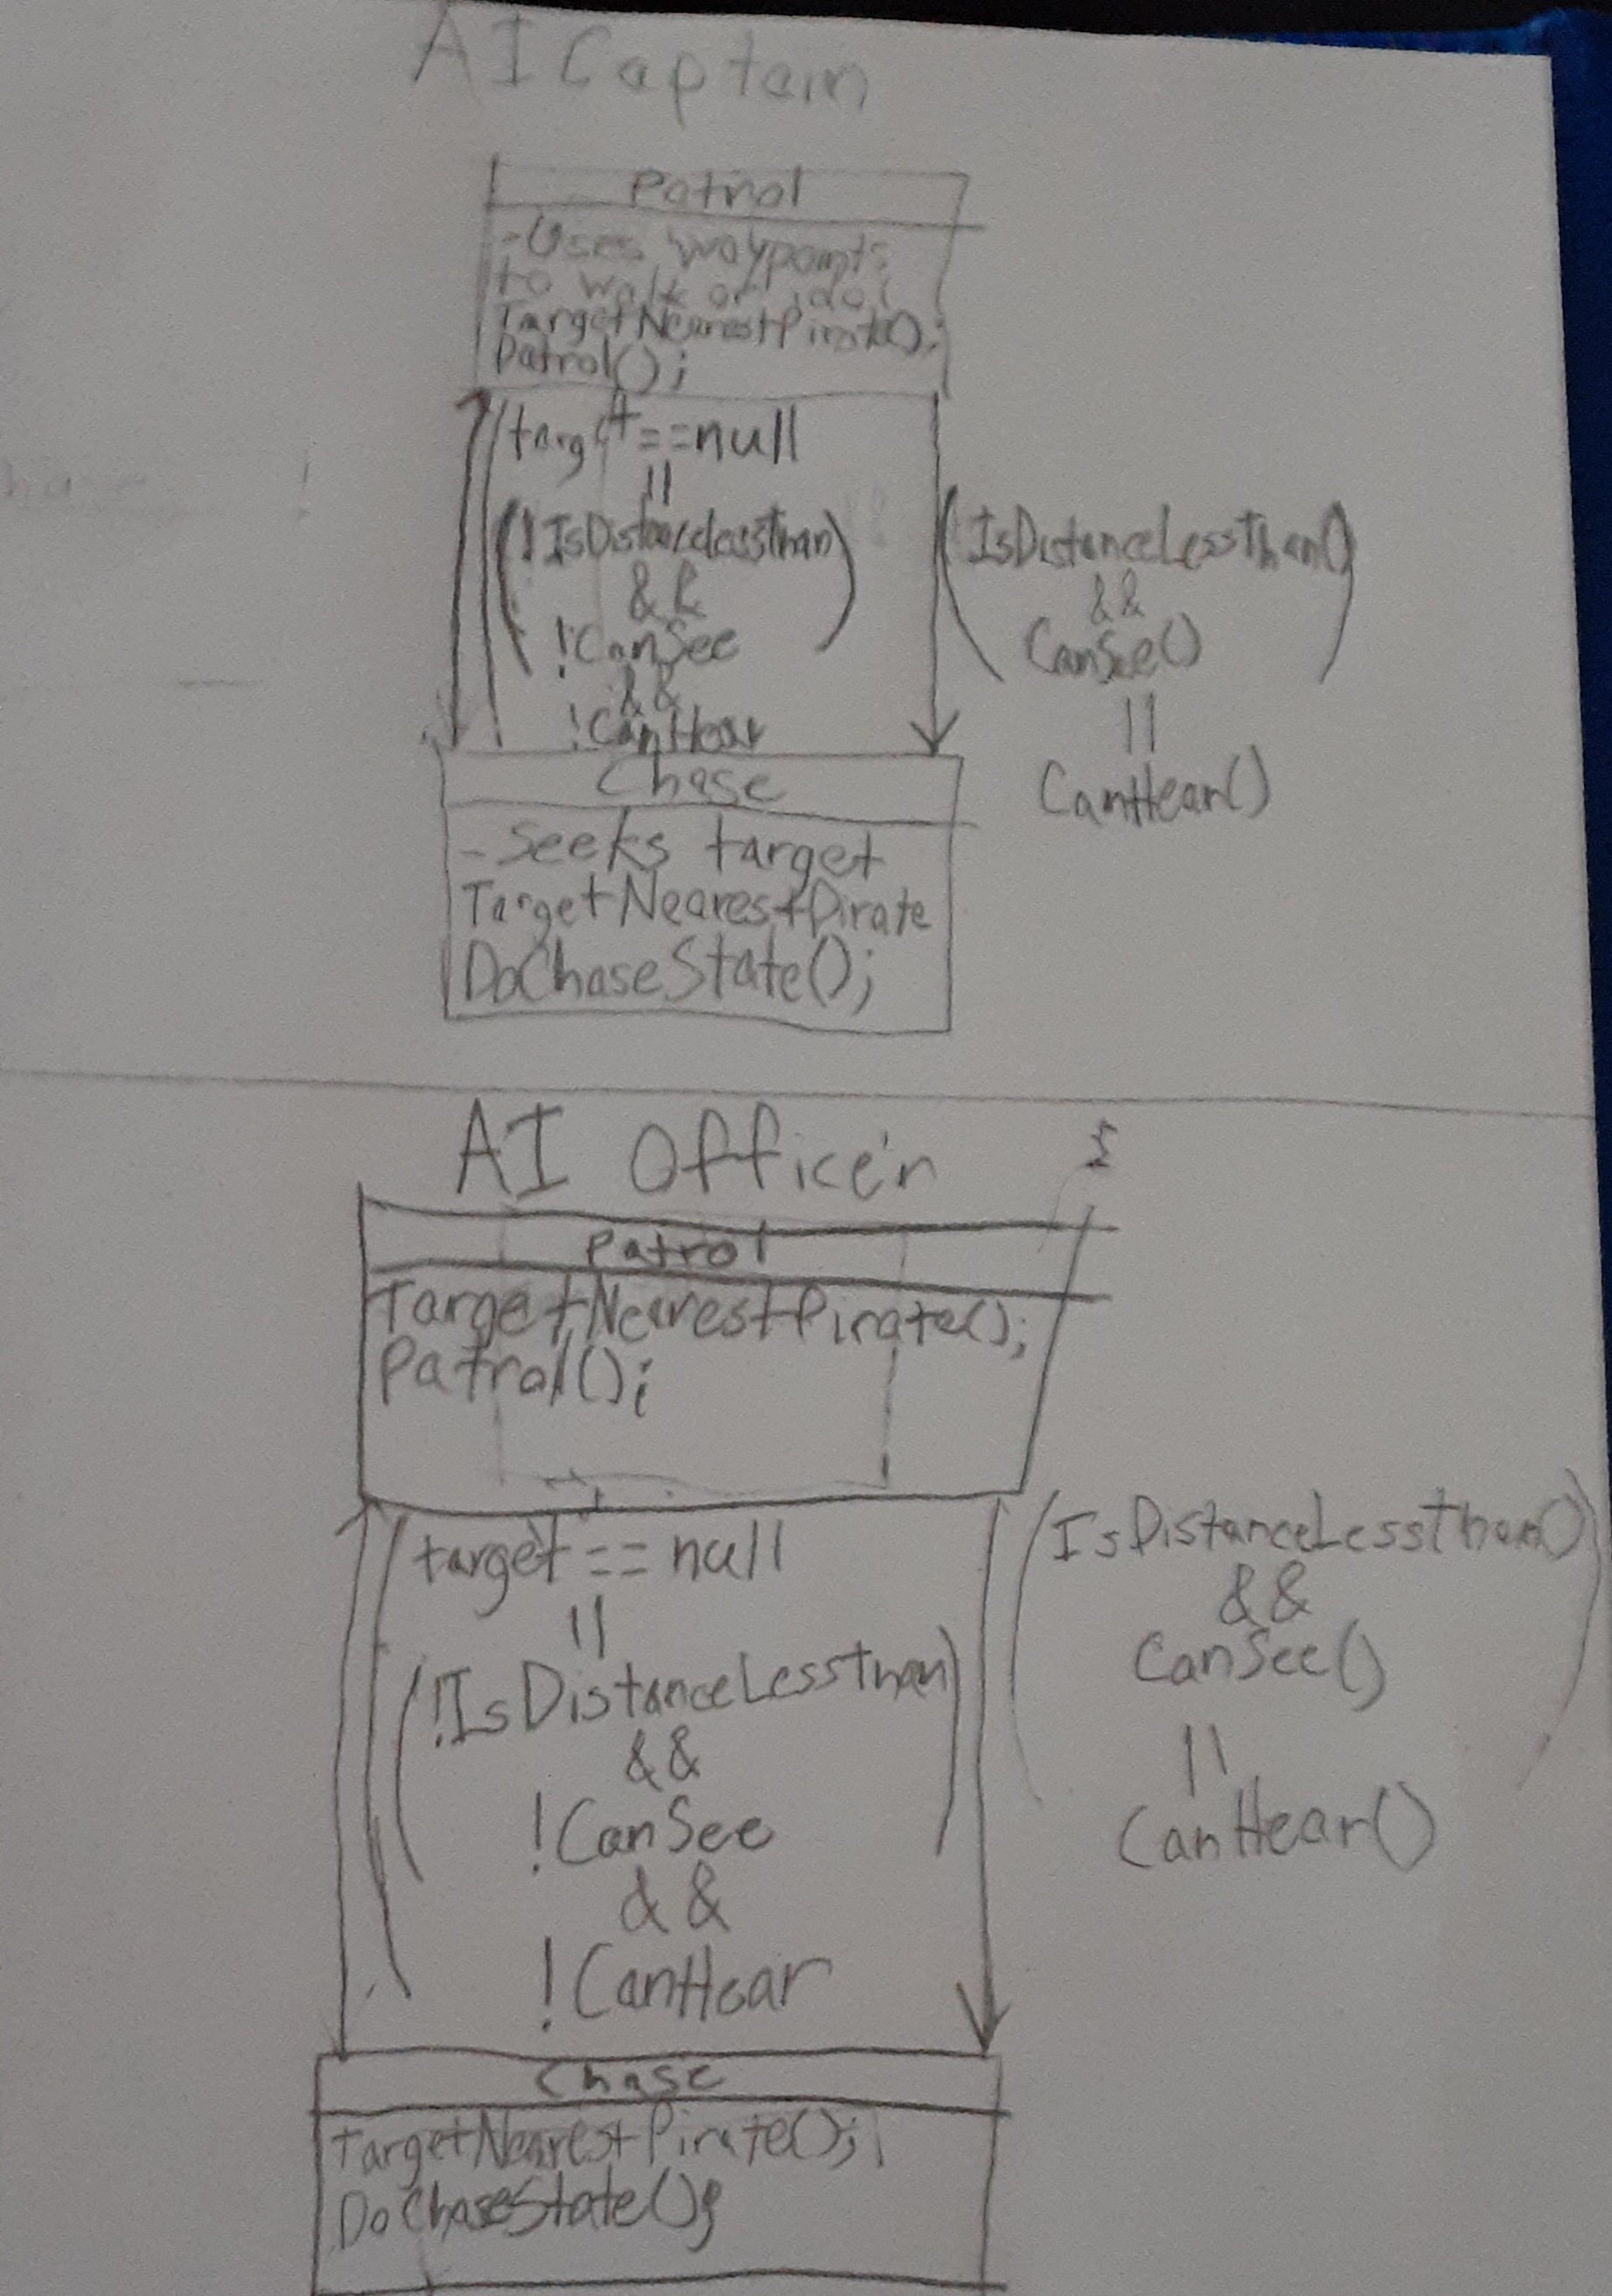 AI Captain
Patrol
-Uses waypoints
to walk or
TargetNearestPirate();
Patrol();
target==null
||
(!IsDistanceLessThan)
&&
!CanSee
&&
!CanHear
(IsDistanceLessThan()
&&
CanSee()
||
CanHear()
)
Chase
-Seeks target
TargetNearestPirate
DoChaseState();
AI Officer
Patrol
TargetNearestPirate();
Patrol();
(target == null
||
(!IsDistanceLessThan)
&&
!CanSee
&&
!CanHear
(IsDistanceLessThan()
&&
CanSee()
||
CanHear()
)
Chase
TargetNearestPirate();
DoChaseState();